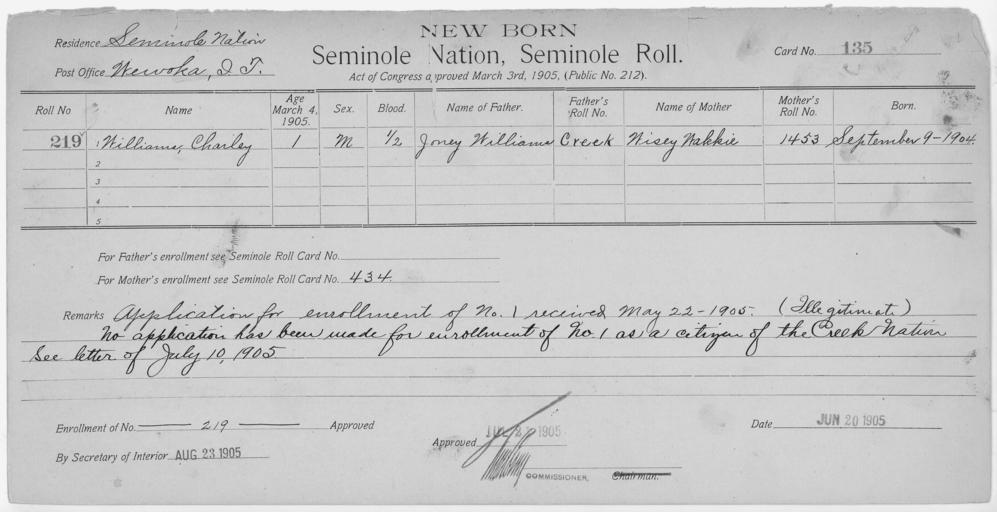 NEW BORN
Residence Seminole Nation
Seminole Nation, Seminole Roll.
Card No. 135
Post Office Wewoka, I. T.
Act of Congress approved March 3rd, 1905, (Public No. 212).
Roll No Name Age March 4, 1905. Sex. Blood. Name of Father. Father's Roll No. Name of Mother Mother's Roll No. Born.
219 1 Williams, Charley 1 M 1/2 Joney Williams Creek Wisey Wakkie 1453 September 9-1904.
2
3
4
5
For Father's enrollment see Seminole Roll Card No.
For Mother's enrollment see Seminole Roll Card No. 434.
Remarks Application for enrollment of No. 1 received May 22-1905. (Illegitimate)
No application has been made for enrollment of No. 1 as a citizen of the Creek Nation
See letter of July 10, 1905
Enrollment of No. 219 Approved
Date JUN 20 1905
Approved 1905
By Secretary of Interior AUG 23 1905
COMMISSIONER. Chairman.